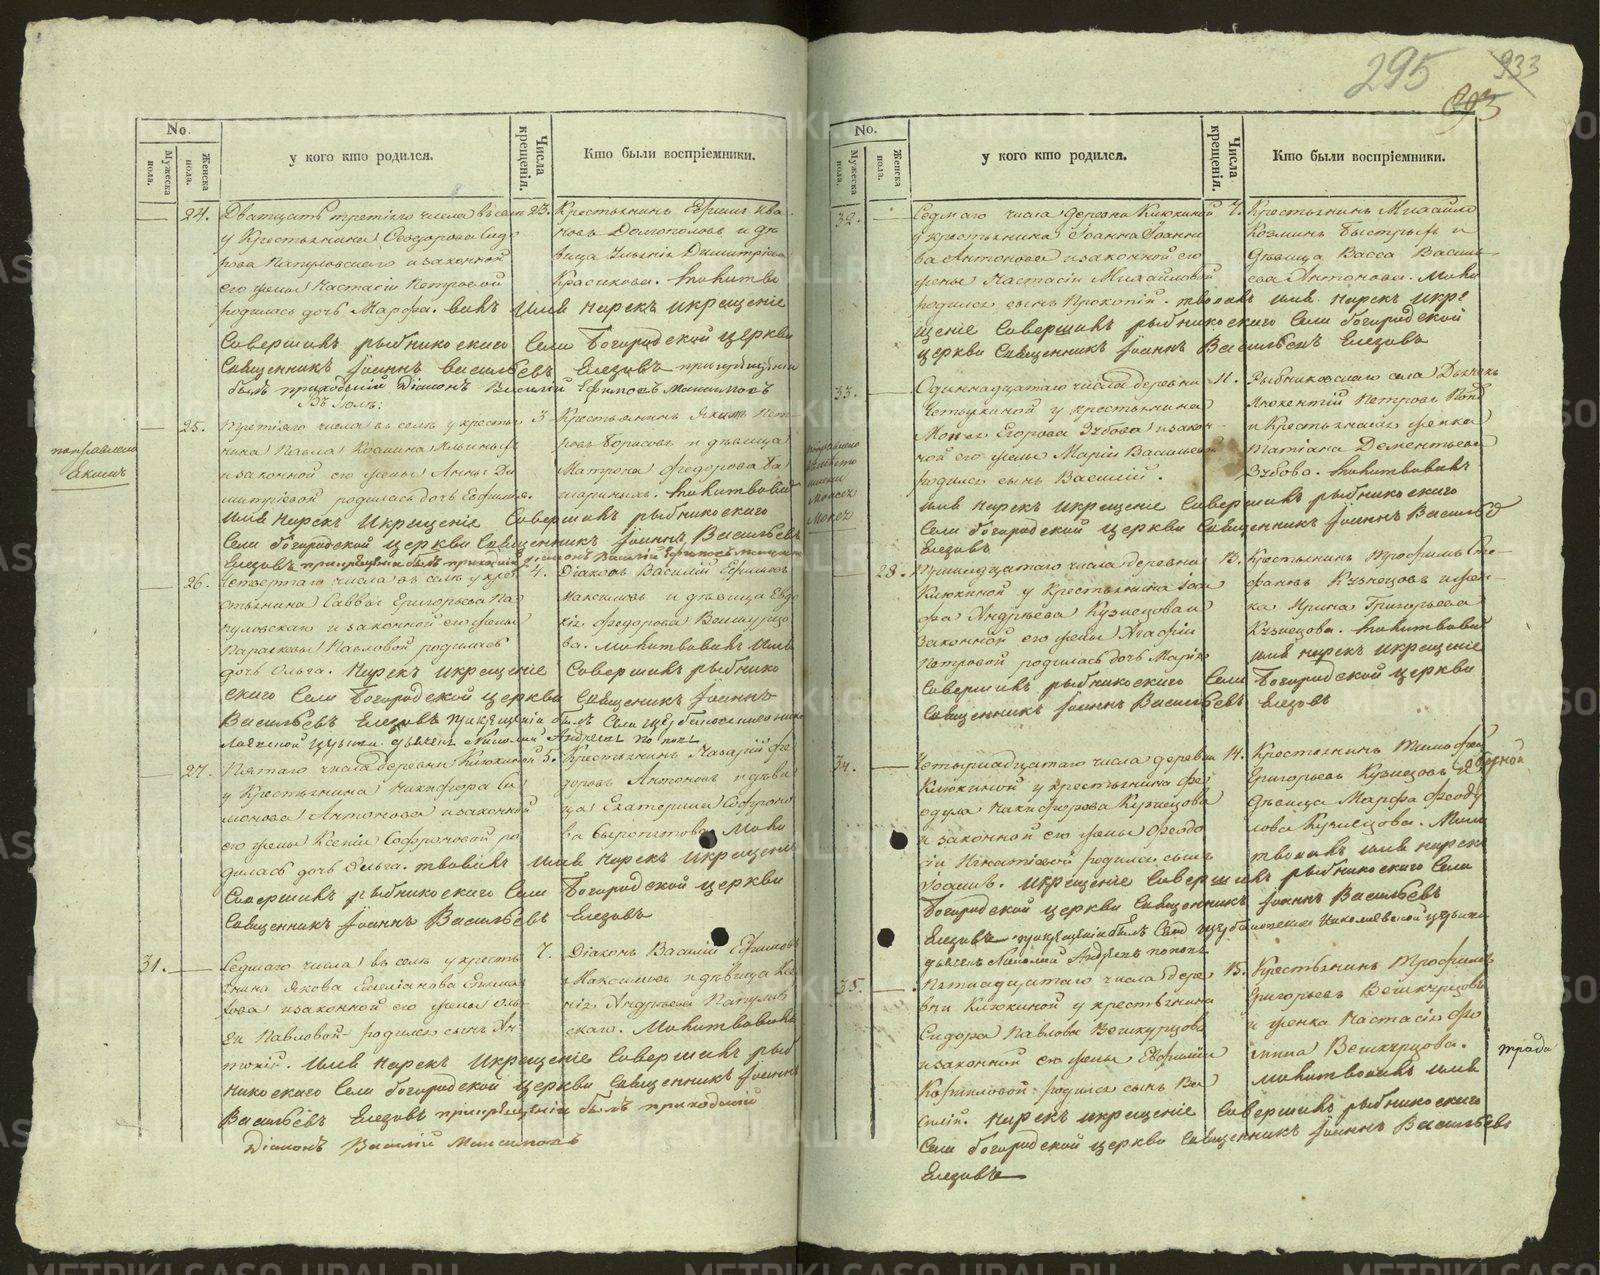 295
933
No.
Мужеска пола.
Женска пола.
у кого кто родился.
Числа крещенія.
Кто были воспріемники.
24. Дватцать третіяго числа въ селѣ
у Крестьянина Ѳеодора Сидо
рова Папуловскаго и законной
его жены Настасіи Петровой
родилась дочь Марѳа.
23. Крестьянинъ Ефимъ Ива
новъ Долгополовъ и дѣ
вица Дмитріева
Красикова. Молитво
вавъ Имя Нарекъ И крещеніе
Совершивъ рыбниковскаго Села Богородской Церкви
Священникъ Іоаннъ Васильевъ Елезовъ при крещеніи
былъ приходскій Діаконъ Василій Ефимовъ Максимовъ
Въ Іюлѣ:
25. Третіяго числа въ селѣ у кресть
нина Павла Козмина Ильиныхъ
и законной его жены Анны Ди
митріевой родилась дочь Евфимія.
3 Крестьянинъ Якимъ Пет
ровъ Борисовъ и дѣвица
Матрона Федорова
Молитвовавъ
имя Нарекъ И крещеніе Совершивъ рыбниковскаго
Села богородской церкви Священникъ Іоаннъ Васильевъ
Елезовъ при крещеніи былъ приходскій діаконъ Василій Ефимовъ
26. Четвертаго числа въ селѣ у кре
стьянина Саввы Григорьева Па
пуловскаго и законной его жены
Параскевы Павловой родилась
дочь Ольга.
4. Діаконъ Василій Ефимовъ
Максимовъ и дѣвица Евдо
кія Федорова Вешкурцо
ва. Молитвовавъ Имя
Нарекъ И крещеніе Совершивъ рыбнико
вскаго Села Богородской церкви Священникъ Іоаннъ
Васильевъ Елезовъ при крещеніи былъ Села
Николай Андреевъ Поповъ
27. Пятаго числа деревни Клюкиной
у Крестьянина Никифора Си
монова Антонова и законной
его жены Ксеніи Софроновой ро
дилась дочь Ольга.
5. Крестьянинъ Назарій Фе
доровъ Антоновъ и дѣви
ца Екатерина Софроно
ва Моли
твовавъ Имя Нарекъ И крещеніе
Совершивъ рыбниковскаго Села Богородской церкви
Священникъ Іоаннъ Васильевъ Елезовъ
31. Седмаго числа въ селѣ у кресть
янина Якова Емеліанова
и законной его жены Оль
ги Павловой родился сынъ Ан
тоній.
7. Діаконъ Василій Ефимовъ
Максимовъ и дѣвица Ксе
нія Андреева Папулов
скаго. Молитвовавъ
Имя Нарекъ И крещеніе Совершивъ рыб
никовскаго Села богородской церкви Священникъ Іоаннъ
Васильевъ Елезовъ при крещеніи былъ приходскій
Діаконъ Василій Максимовъ
No.
Мужеска пола.
Женска пола.
у кого кто родился.
Числа крещенія.
Кто были воспріемники.
32. Седмаго числа деревни Клюкиной
у крестьянина Іоанна Іоанно
ва Антонова и законной его
жены Настасіи Михайловой
родился сынъ Прокопій.
7. Крестьянинъ Михайло
Козминъ Быстрыхъ и
дѣвица Васса Василь
ева Антонова. Моли
твовавъ Имя Нарекъ И кре
щеніе Совершивъ рыбниковскаго Села богородской
Церкви Священникъ Іоаннъ Васильевъ Елезовъ
33. Одиннадцатаго числа деревни
Четыркиной у крестьянина
Мокея Егорова Зубова и закон
ной его жены Маріи Васильевой
родился сынъ Василій.
11. Рыбниковскаго села Дьячекъ
Інокентій Петровъ Поповъ
и Крестьянская женка
Татіана Дементьева
Зубова. Молитвовавъ
имя Нарекъ И крещеніе Совершивъ рыбниковскаго
Села богородской церкви Священникъ Іоаннъ Васильевъ
Елезовъ
28. Тринадцатаго числа деревни
Клюкиной у Крестьянина Іоси
фа Андреева Кузнецова и
законной его жены Агафіи
Петровой родилась дочь Марія
13. Крестьянинъ Трофимъ Сте
фановъ Кузнецовъ и жен
ка Ирина Григорьева
Кузнецова. Молитвовавъ
имя Нарекъ И крещеніе
Совершивъ рыбниковскаго Села Богородской церкви
Священникъ Іоаннъ Васильевъ Елезовъ
34. Четырнадцатаго числа деревни
Клюкиной у крестьянина Фе
одула Никифорова Кузнецова
и законной его жены Ѳеодо
сіи Игнатіевой родился сынъ
Іоаннъ.
14. Крестьянинъ Тимофей
Григорьевъ Кузнецовъ
дѣвица Марфа Феоду
лова Кузнецова. Моли
твовавъ имя нарекъ
И крещеніе Совершивъ рыбниковскаго Села
Богородской церкви Священникъ Іоаннъ Васильевъ
Елезовъ при крещеніи былъ Села Николаевской церкви
дьячекъ Николай Андреевъ Поповъ
35. Пятнадцатаго числа дере
вни Клюкиной у крестьянина
Сидора Павлова Вешкурцова
и законной его жены Евфиміи
Корниловой родился сынъ Ва
силій.
15. Крестьянинъ Трофимъ
Григорьевъ Вешкурцовъ
и женка Настасія Фо
мина Вешкурцова.
Молитвовавъ имя
Нарекъ И крещеніе Совершивъ рыбниковскаго
Села богородской церкви Священникъ Іоаннъ Васильевъ
Елезовъ
METRIKI.GASO-URAL.RU